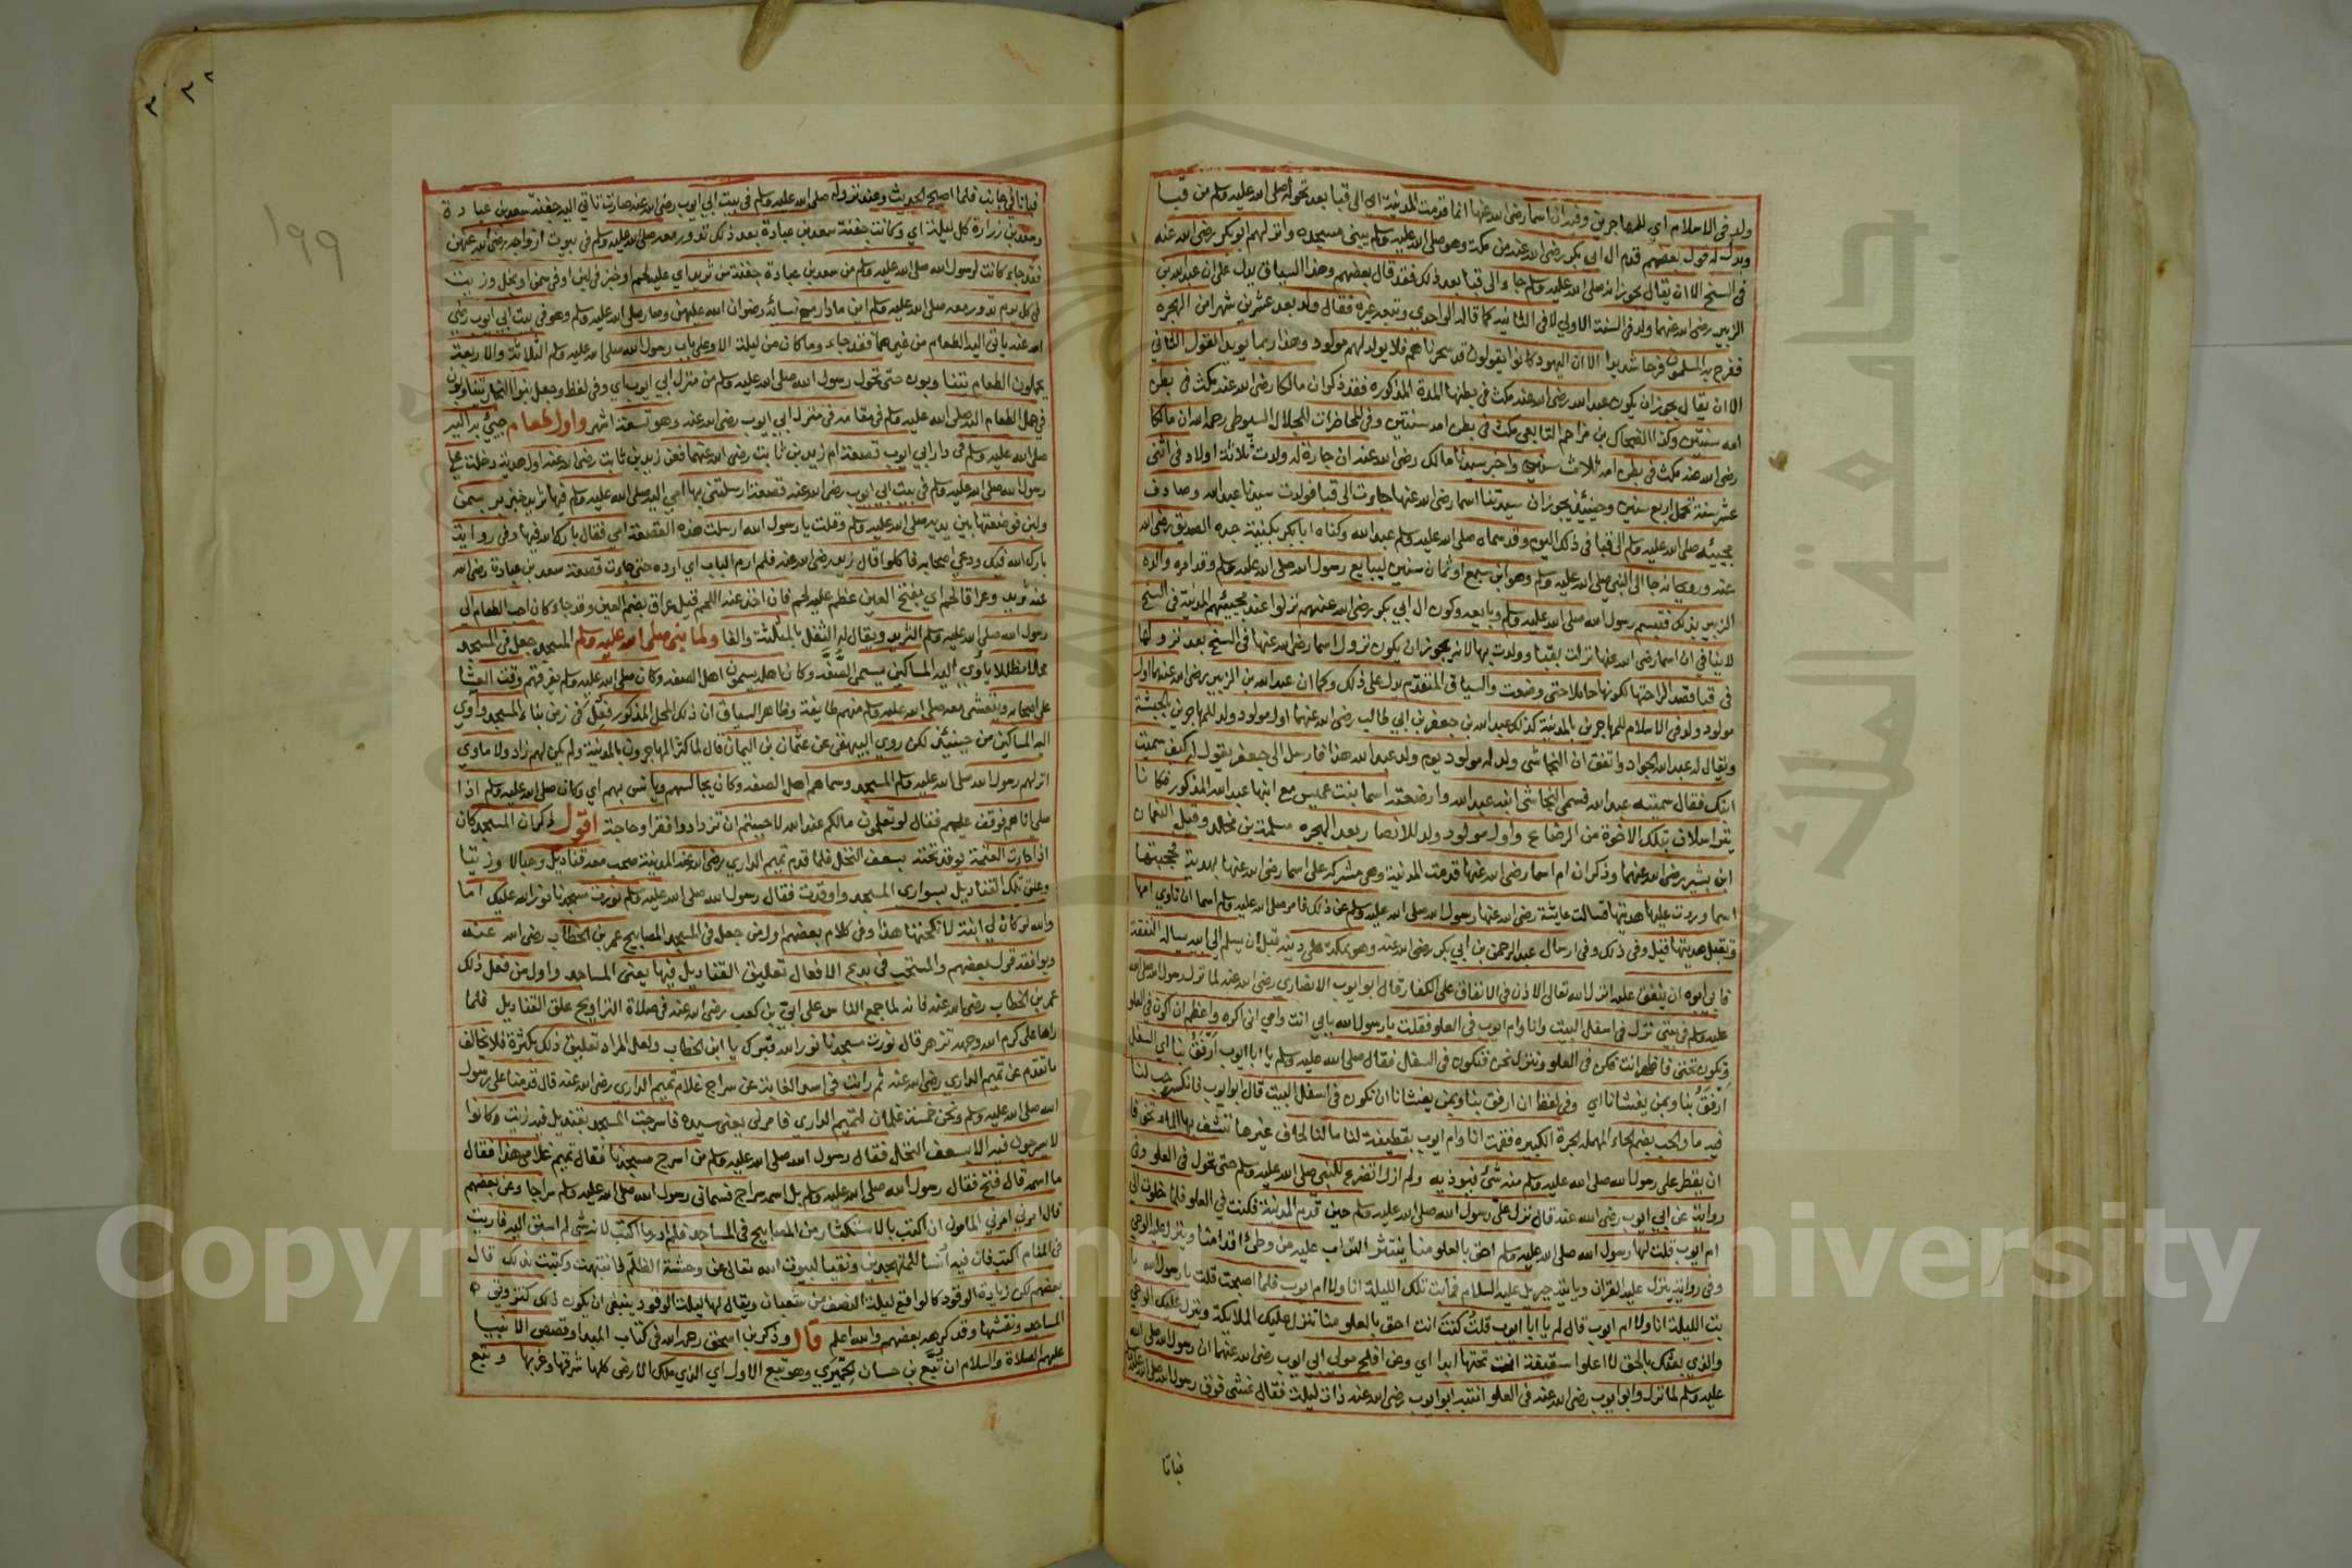 ولد في الاسلام اي للمهاجرين وقيل ان اسما رضي الله عنها انما قدمت المدينة اي الى قبا بعد تحوله صلى الله عليه وسلم من قبا
ويدل له قول بعضهم قدم ال ابي بكر رضي الله عنه من مكة وهو صلى الله عليه وسلم يبني مسجده وانزلهم ابو بكر رضي الله عنه
في السنح الا ان يقال يجوز انه صلى الله عليه وسلم جاء الى قبا بعد ذلك فقد قال بعضهم وهذا السياق يدل على ان عبد الله بن
الزبير رضي الله عنهما ولد في السنة الاولى لا في الثانية كما قاله الواحدي وتبعه غيره فقال ولد بعد عشرين شهرا من الهجره
ففرح به المسلمون فرحا شديدا الا ان اليهود كانوا يقولون قد سحرناهم فلا يولد لهم مولود وهذا ربما يويد القول الثاني
الا ان يقال يجوز ان يكون عبد الله رضي الله عنه مكث في بطنها المدة المذكوره فقد ذكر ان مالكا رضي الله عنه مكث في بطن
امه سنتين وكذا الضحاك بن مزاحم التابعي مكث في بطن امه سنتين وفي المحاضرات للجلال السيوطي رحمه الله ان مالكا
رضي الله عنه مكث في بطن امه ثلاث سنين واخبر سيدنا مالك رضي الله عنه ان جارة له ولدت ثلاثة اولاد في اثنى
عشر سنة تحمل اربع سنين وحينئذ يجوز ان سيدتنا اسما رضي الله عنها جاءت الى قبا فولدت سيدنا عبد الله وصادف
مجيئه صلى الله عليه وسلم الى قبا في ذلك اليوم وقد سماه صلى الله عليه وسلم عبد الله وكناه ابا بكر بكنية جده الصديق رضي الله
عنه وروي انه جا الى النبي صلى الله عليه وسلم وهو ابن سبع او ثمان سنين ليبايع رسول الله صلى الله عليه وسلم وقد امره والده
الزبير بذلك فتبسم رسول الله صلى الله عليه وسلم وبايعه وكون ال ابي بكر رضي الله عنهم نزلوا عند مجيئهم المدينة في السنح
لا ينافي ان اسما رضي الله عنها نزلت بقبا وولدت بها لانه يجوز ان يكون نزول اسما رضي الله عنها في السنح بعد نزولها
في قبا فقصد الراحتها لكونها حاملا حتى وضعت والسياق المتقدم يدل على ذلك وكما ان عبد الله بن الزبير رضي الله عنهما اول
مولود ولد في الاسلام للمهاجرين بالمدينة كذلك عبد الله بن جعفر بن ابي طالب رضي الله عنهما اول مولود ولد للمهاجرين بالحبشة
ويقال له عبد الله الجواد واتفق ان النجاشي ولد له مولود يوم ولد عبد الله هذا فارسل الى جعفر يقول له كيف سميت
ابنك فقال سميته عبد الله فسمى النجاشي ابنه عبد الله وارضعته اسما بنت عميس مع ابنها عبد الله المذكور فكانا
يتراسلان بتلك الاخوة من الرضاع واول مولود ولد للانصار بعد الهجره مسلمة بن مخلد وقيل النعمان
ابن بشير رضي الله عنهما وذكر ان ام اسما رضي الله عنها قدمت المدينة وهي مشركة على اسما رضي الله عنها بهدية فحجبتها
اسما وردت عليها هديتها فسالت عايشة رضي الله عنها رسول الله صلى الله عليه وسلم عن ذلك فامر صلى الله عليه وسلم اسما ان تاوي امها
وتقبل هديتها قيل وفي ذلك وفي ارسال عبد الرحمن بن ابي بكر رضي الله عنه وهو بمكة على دينه قبل ان يسلم الى ابيه يساله النفقة
فابى ابوه ان ينفق عليه انزل الله تعالى الاذن في الانفاق على الكفار قال ابو ايوب الانصاري رضي الله عنه لما نزل رسول الله صلى الله
عليه وسلم في بيتي نزل في اسفل البيت وانا وام ايوب في العلو فقلت يا رسول الله بابي انت وامي اني اكره واعظم ان اكون في العلو
وتكون تحتي فاظهر انت فكن في العلو وننزل نحن فنكون في السفل فقال صلى الله عليه وسلم يا ابا ايوب ارفق بنا اي السفل
ارفق بنا وبمن يغشانا اي وفي لفظ ان ارفق بنا وبمن يغشانا ان نكون في اسفل البيت قال ابو ايوب فانكسر حب لنا
فيه ما والحب بضم الحاء المهمله الجرة الكبيره فقمت انا وام ايوب بقطيفة لنا ما لنا لحاف غيرها ننشف بها الماء تخوفا
ان يقطر على رسول الله صلى الله عليه وسلم منه شئ فيوذيه ولم ازل اتضرع للنبي صلى الله عليه وسلم حتى تحول في العلو وفي
رواية عن ابي ايوب رضي الله عنه قال نزل على رسول الله صلى الله عليه وسلم حين قدم المدينة فكنت في العلو فلما خلوت الى
ام ايوب قلت لها رسول الله صلى الله عليه وسلم احق بالعلو منا ينتثر التراب عليه من وطئ اقدامنا وينزل عليه الوحي
وفي رواية ينزل عليه القران ويا تيه جبريل عليه السلام فما بت تلك الليلة انا ولا ام ايوب فلما اصبحت قلت يا رسول الله ما
بت الليلة انا ولا ام ايوب قال لم يا ابا ايوب قلت كنت انت احق بالعلو منا تنزل عليك الملايكة وينزل عليك الوحي
والذي بعثك بالحق لا اعلوا سقيفة انت تحتها ابدا اي وعن افلح مولى ابي ايوب رضي الله عنهما ان رسول الله صلى الله
عليه وسلم لما نزل وابو ايوب رضي الله عنه في العلو انتبه ابو ايوب رضي الله عنه ذات ليلة فقال نمشي فوق رسول الله صلى الله عليه وسلم
فباتا
١٩٩
فباتا في جانب فلما اصبح الحديث وعند نزوله صلى الله عليه وسلم في بيت ابي ايوب رضي الله عنه صارت تاتي اليه جفنة سعد بن عبادة
وسعد بن زرارة كل ليلة اي وكانت جفنة سعد بن عبادة بعد ذلك تدور معه صلى الله عليه وسلم في بيوت ازواجه رضي الله عنهن
فقد جاء كانت لرسول الله صلى الله عليه وسلم من سعد بن عبادة جفنة من ثريد اي عليه لحم او خبز في لبن او في سمن او بخل وزيت
في كل يوم تدور معه صلى الله عليه وسلم اين ما دار مع نسائه رضوان الله عليهن وصار صلى الله عليه وسلم وهو في بيت ابي ايوب رضي
الله عنه ياتي اليه الطعام من غيرهما فقد جاء وما كان من ليلة الا وعلى باب رسول الله صلى الله عليه وسلم الثلاثة والاربعة
يحملون الطعام يتناوبون حتى تحول رسول الله صلى الله عليه وسلم من منزل ابي ايوب اي وفي لفظ وجعل بنوا النجار يتناوبون
في حمل الطعام اليه صلى الله عليه وسلم في مقامه في منزل ابي ايوب رضي الله عنه وهو تسعة اشهر واول طعام جيئ به اليه
صلى الله عليه وسلم في دار ابي ايوب قصعة ام زيد بن ثابت رضي الله عنهما فعن زيد بن ثابت رضي الله عنه اول هدية دخلت على
رسول الله صلى الله عليه وسلم في بيت ابي ايوب رضي الله عنه قصعة ارسلتني بها امي اليه صلى الله عليه وسلم فيها ثريد خبز بر بسمن
ولبن فوضعتها بين يديه صلى الله عليه وسلم وقلت يا رسول الله ارسلت هذه القصعة امي فقال بارك الله فيها وفي رواية
بارك الله فيك ودعى اصحابه فاكلوا قال زيد رضي الله عنه فلم ارم الباب اي ارده حتى جاءت قصعة سعد بن عبادة رضي الله
عنه ثريد وعراق لحم اي بفتح العين عظم عليه لحم فان اخذ عنه اللحم قيل عراق بضم العين وقد جاء كان احب الطعام الى
رسول الله صلى الله عليه وسلم الثريد ويقال له الثفل بالمثلثة والفا ولما بنى صلى الله عليه وسلم المسجد جعل في المسجد
محلا مظللا ياوي اليه المساكين يسمى الصفه وكان اهله يسمون اهل الصفه وكان صلى الله عليه وسلم يفرقهم وقت العشا
على اصحابه ويتعشى معه صلى الله عليه وسلم منهم طايفة وظاهر السياق ان ذلك المحل المذكور فعل في زمن بناء المسجد واوي
اليه المساكين من حينئذ لكن روي البيهقي عن عثمان بن اليمان قال لما كثر المهاجرون بالمدينة ولم يكن لهم زاد ولا ماوي
انزلهم رسول الله صلى الله عليه وسلم المسجد وسماهم اهل الصفه وكان يجالسهم ويانس بهم اي وكان صلى الله عليه وسلم اذا
صلى اتاهم فوقف عليهم فقال لو تعلمون ما لكم عند الله لاحببتم ان تزدادوا فقرا وحاجة اقول ذكر ان المسجد كان
اذا جاءت العتمة يوقد فيه بسعف النخل فلما قدم تميم الداري رضي الله عنه المدينة صحب معه قناديل وحبالا وزيتا
وعلق تلك القناديل بسواري المسجد واوقدت فقال رسول الله صلى الله عليه وسلم نورت مسجدنا نور الله عليك اما
والله لو كان لي ابنة لانكحتكها هذا وفي كلام بعضهم اول من جعل في المسجد المصابيح عمر بن الخطاب رضي الله عنه
ويوافقه قول بعضهم والمستحب في بدع الافعال تعليق القناديل فيها يعني المساجد واول من فعل ذلك
عمر بن الخطاب رضي الله عنه فانه لما جمع الناس على ابي بن كعب رضي الله عنه في صلاة التراويح علق القناديل فلما
راها على كرم الله وجهه تزهر قال نورت مسجدنا نور الله قبرك يا ابن الخطاب ولعل المراد تعليق ذلك بكثرة فلا يخالف
ما تقدم عن تميم الداري رضي الله عنه ثم رايت في اسد الغابة عن سراج غلام تميم الداري رضي الله عنه قال قدمنا على رسول
الله صلى الله عليه وسلم ونحن خمسة غلمان لتميم الداري فامرني يعني سيده فاسرجت المسجد بقنديل فيه زيت وكانوا
لا يسرجون فيه الا بسعف النخل فقال رسول الله صلى الله عليه وسلم من اسرج مسجدنا فقال تميم غلامي هذا فقال
ما اسمه قال فتح فقال رسول الله صلى الله عليه وسلم بل اسمه سراج فسماني رسول الله صلى الله عليه وسلم سراجا وعن بعضهم
قال امرني المامون ان اكتب بالاستكثار من المصابيح في المساجد فلم ادر ما اكتب لانه شئ لم اسبق اليه فاريت
في المنام اكتب فان فيه انسا للمتهجدين ونفيا لبيوت الله تعالى عن وحشة الظلم فانتبهت وكتبت بذلك قال
بعضهم لكن زيادة الوقود كالواقع ليلة النصف من شعبان ويقال لها ليلة الوقود ينبغي ان يكون ذلك كتزويق
المساجد ونقشها وقد كرهه بعضهم والله اعلم قال وذكر بن اسحق رحمه الله في كتاب المبدا وقصص الانبيا
عليهم الصلاة والسلام ان تبع بن حسان الحميري وهو تبع الاول اي الذي ملك الارض كلها شرقها وغربها وتبع
Copyright University